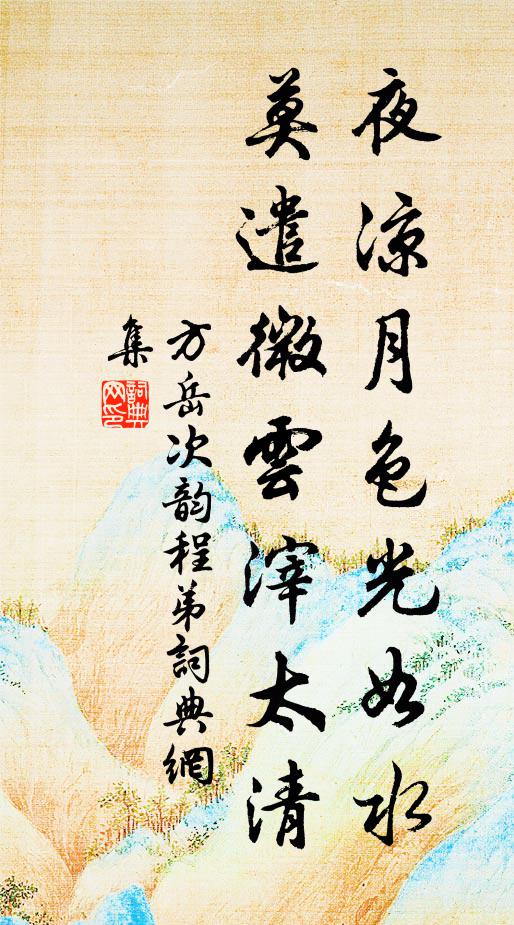 夜涼月色光如水
莫遣微雲滓太清
方岳次韵程弟詞典網
集
詞典
网印